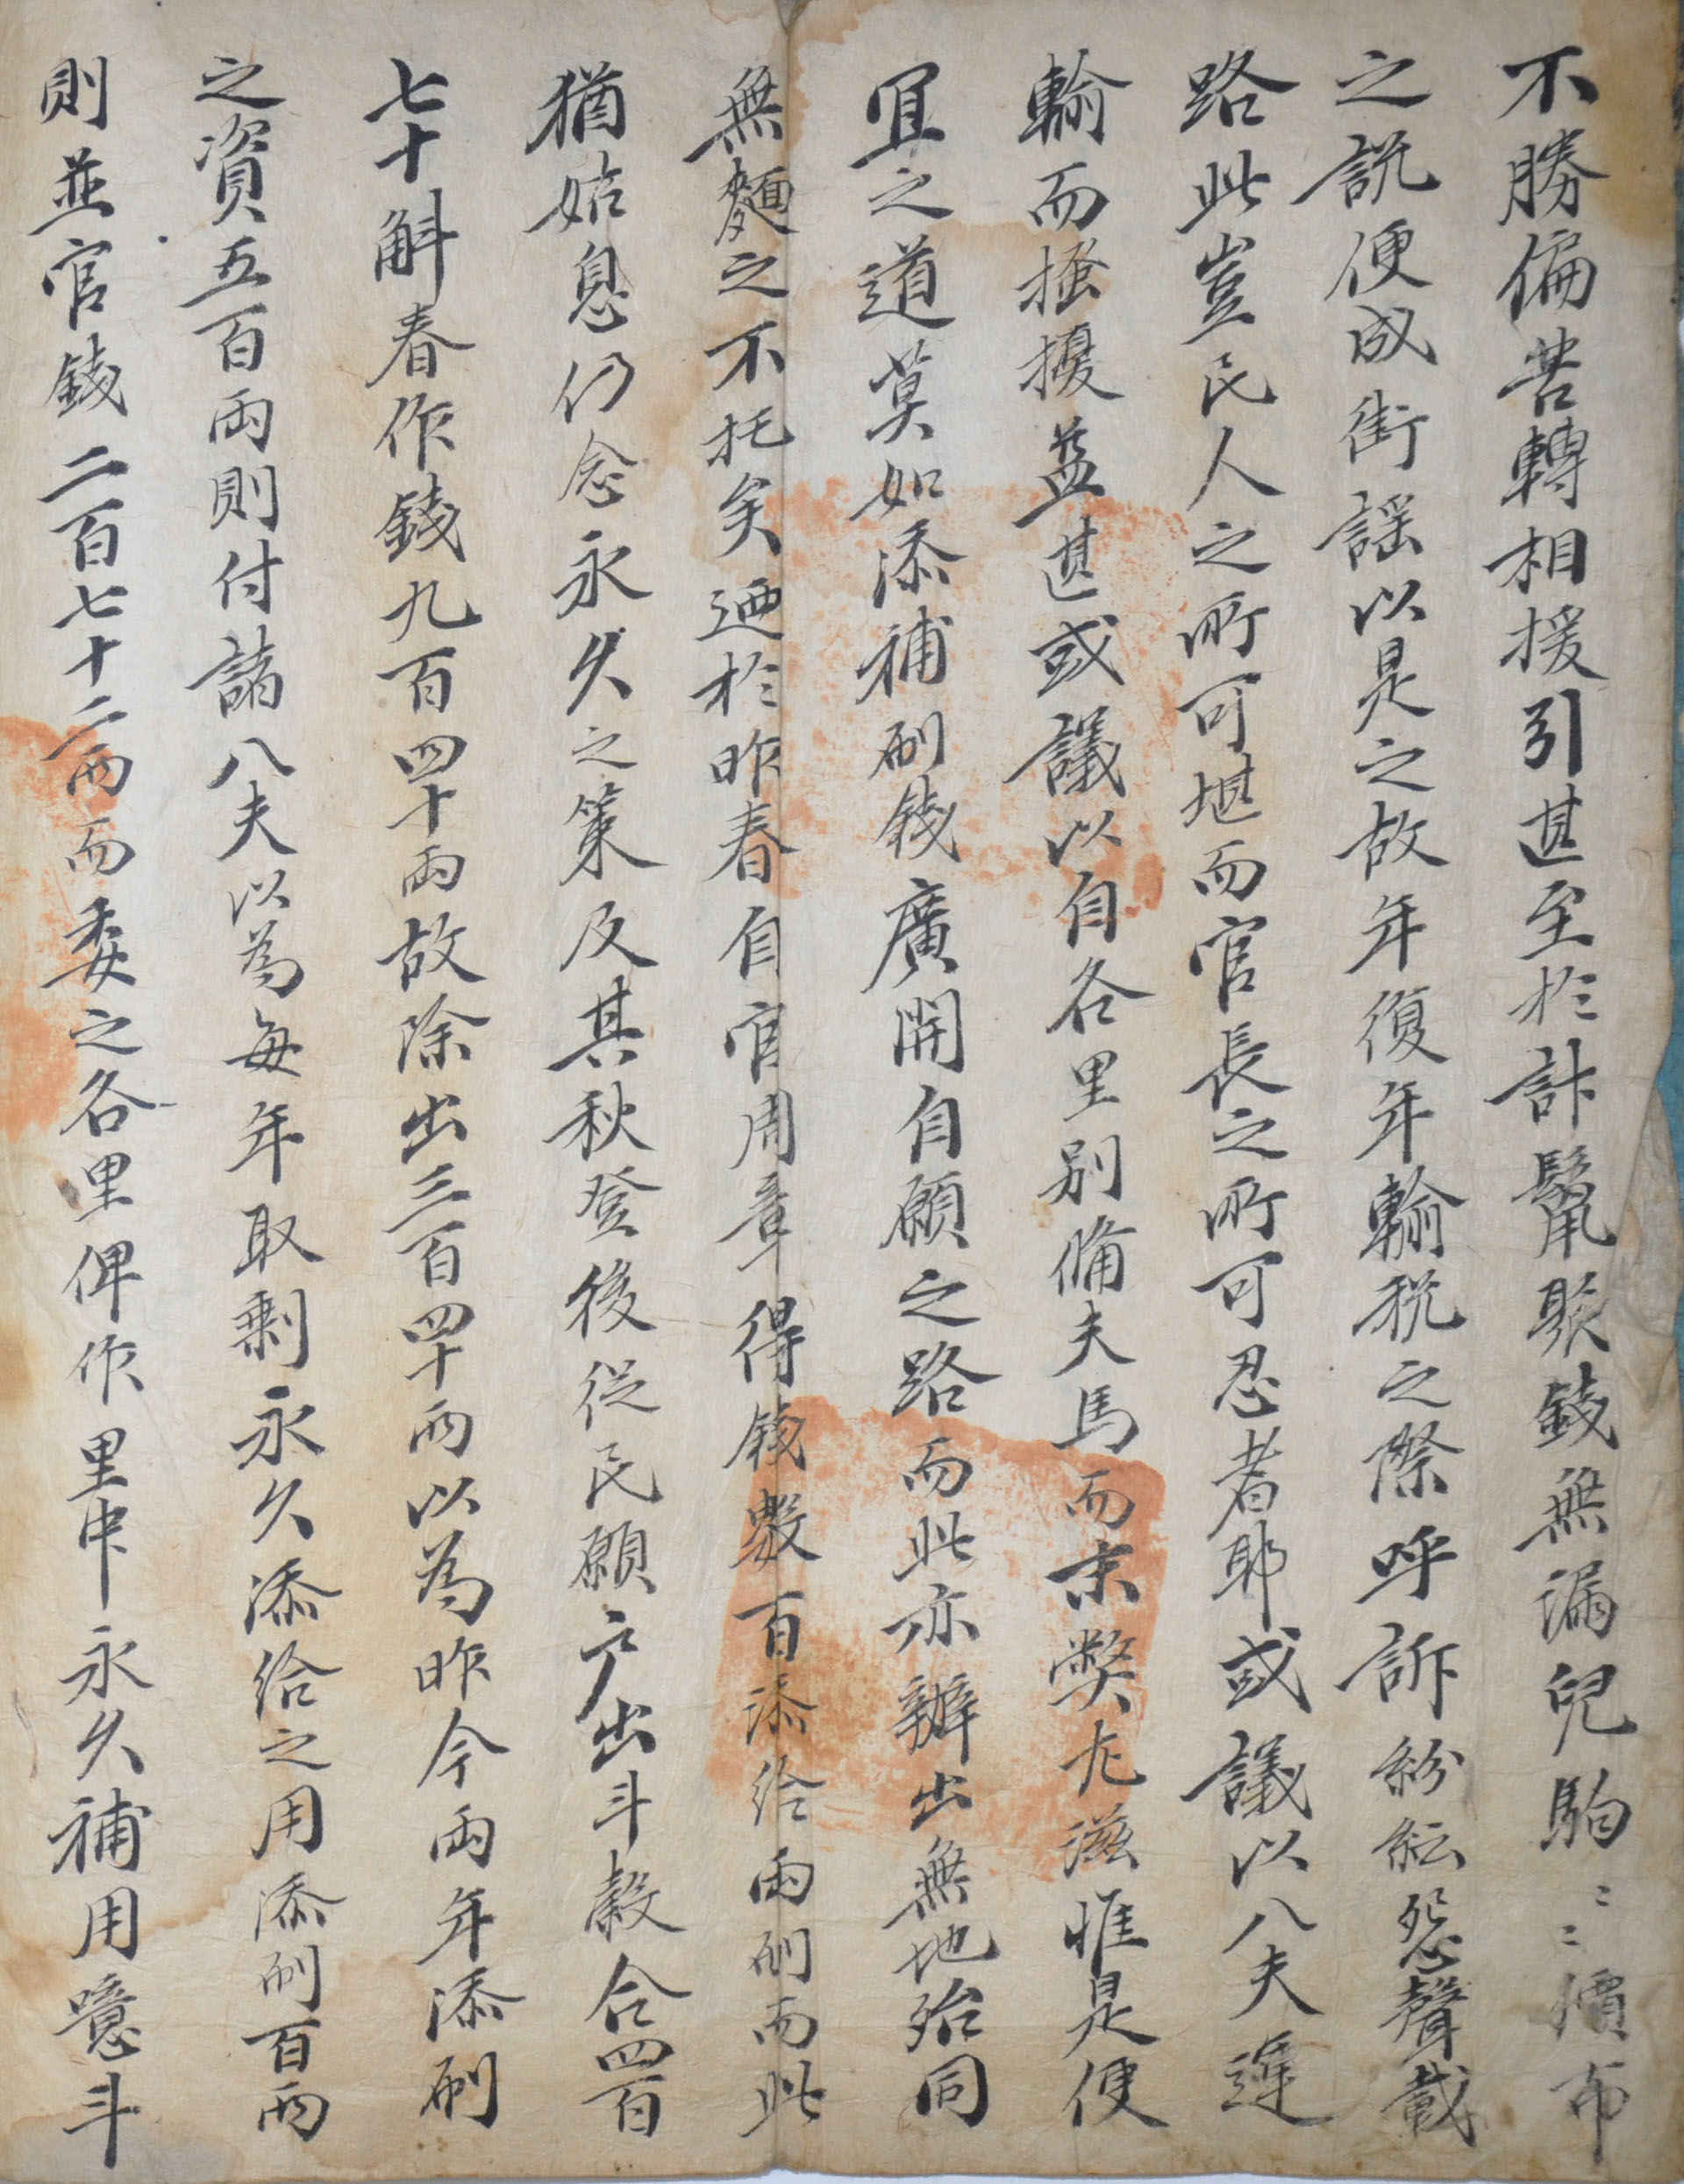 不勝偏苦轉相援引甚至於計鬣聚錢無漏兒駒〻〻價布
之說便成街謠以是之故年復年輸稅之際呼訴紛紜怨聲載
路此豈民人之所可堪而官長之所可忍者耶或議以八夫運
輸而搔擾益甚或議以自各里別備夫馬而末弊尤滋惟是便
宜之道莫如添補刷錢廣開自願之路而此亦辦出無地殆同
無麵之不托矣迺於昨春自官周章得錢數百添給兩刷而此
猶姑息仍念永久之策及其秋登後從民願戶出斗穀合四百
七十斛春作錢九百四十兩故除出三百四十兩以為昨今兩年添刷
之資五百兩則付諸八夫以為每年取剩永久添給之用添刷百兩
則並官錢二百七十二兩而委之各里俾作里中永久補用噫斗